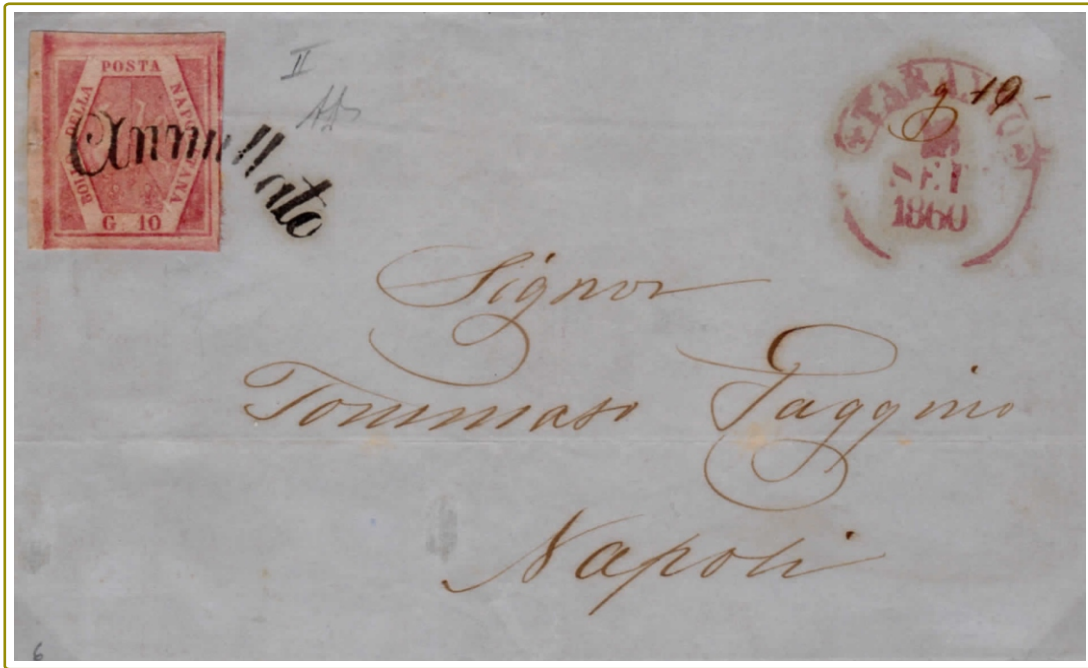 BOLLO DELLA POSTA NAPOLETANA
G. 10
Annullato
II
TARANTO
g 10
SET
1860
Signor
Tommaso Faggino
Napoli
6